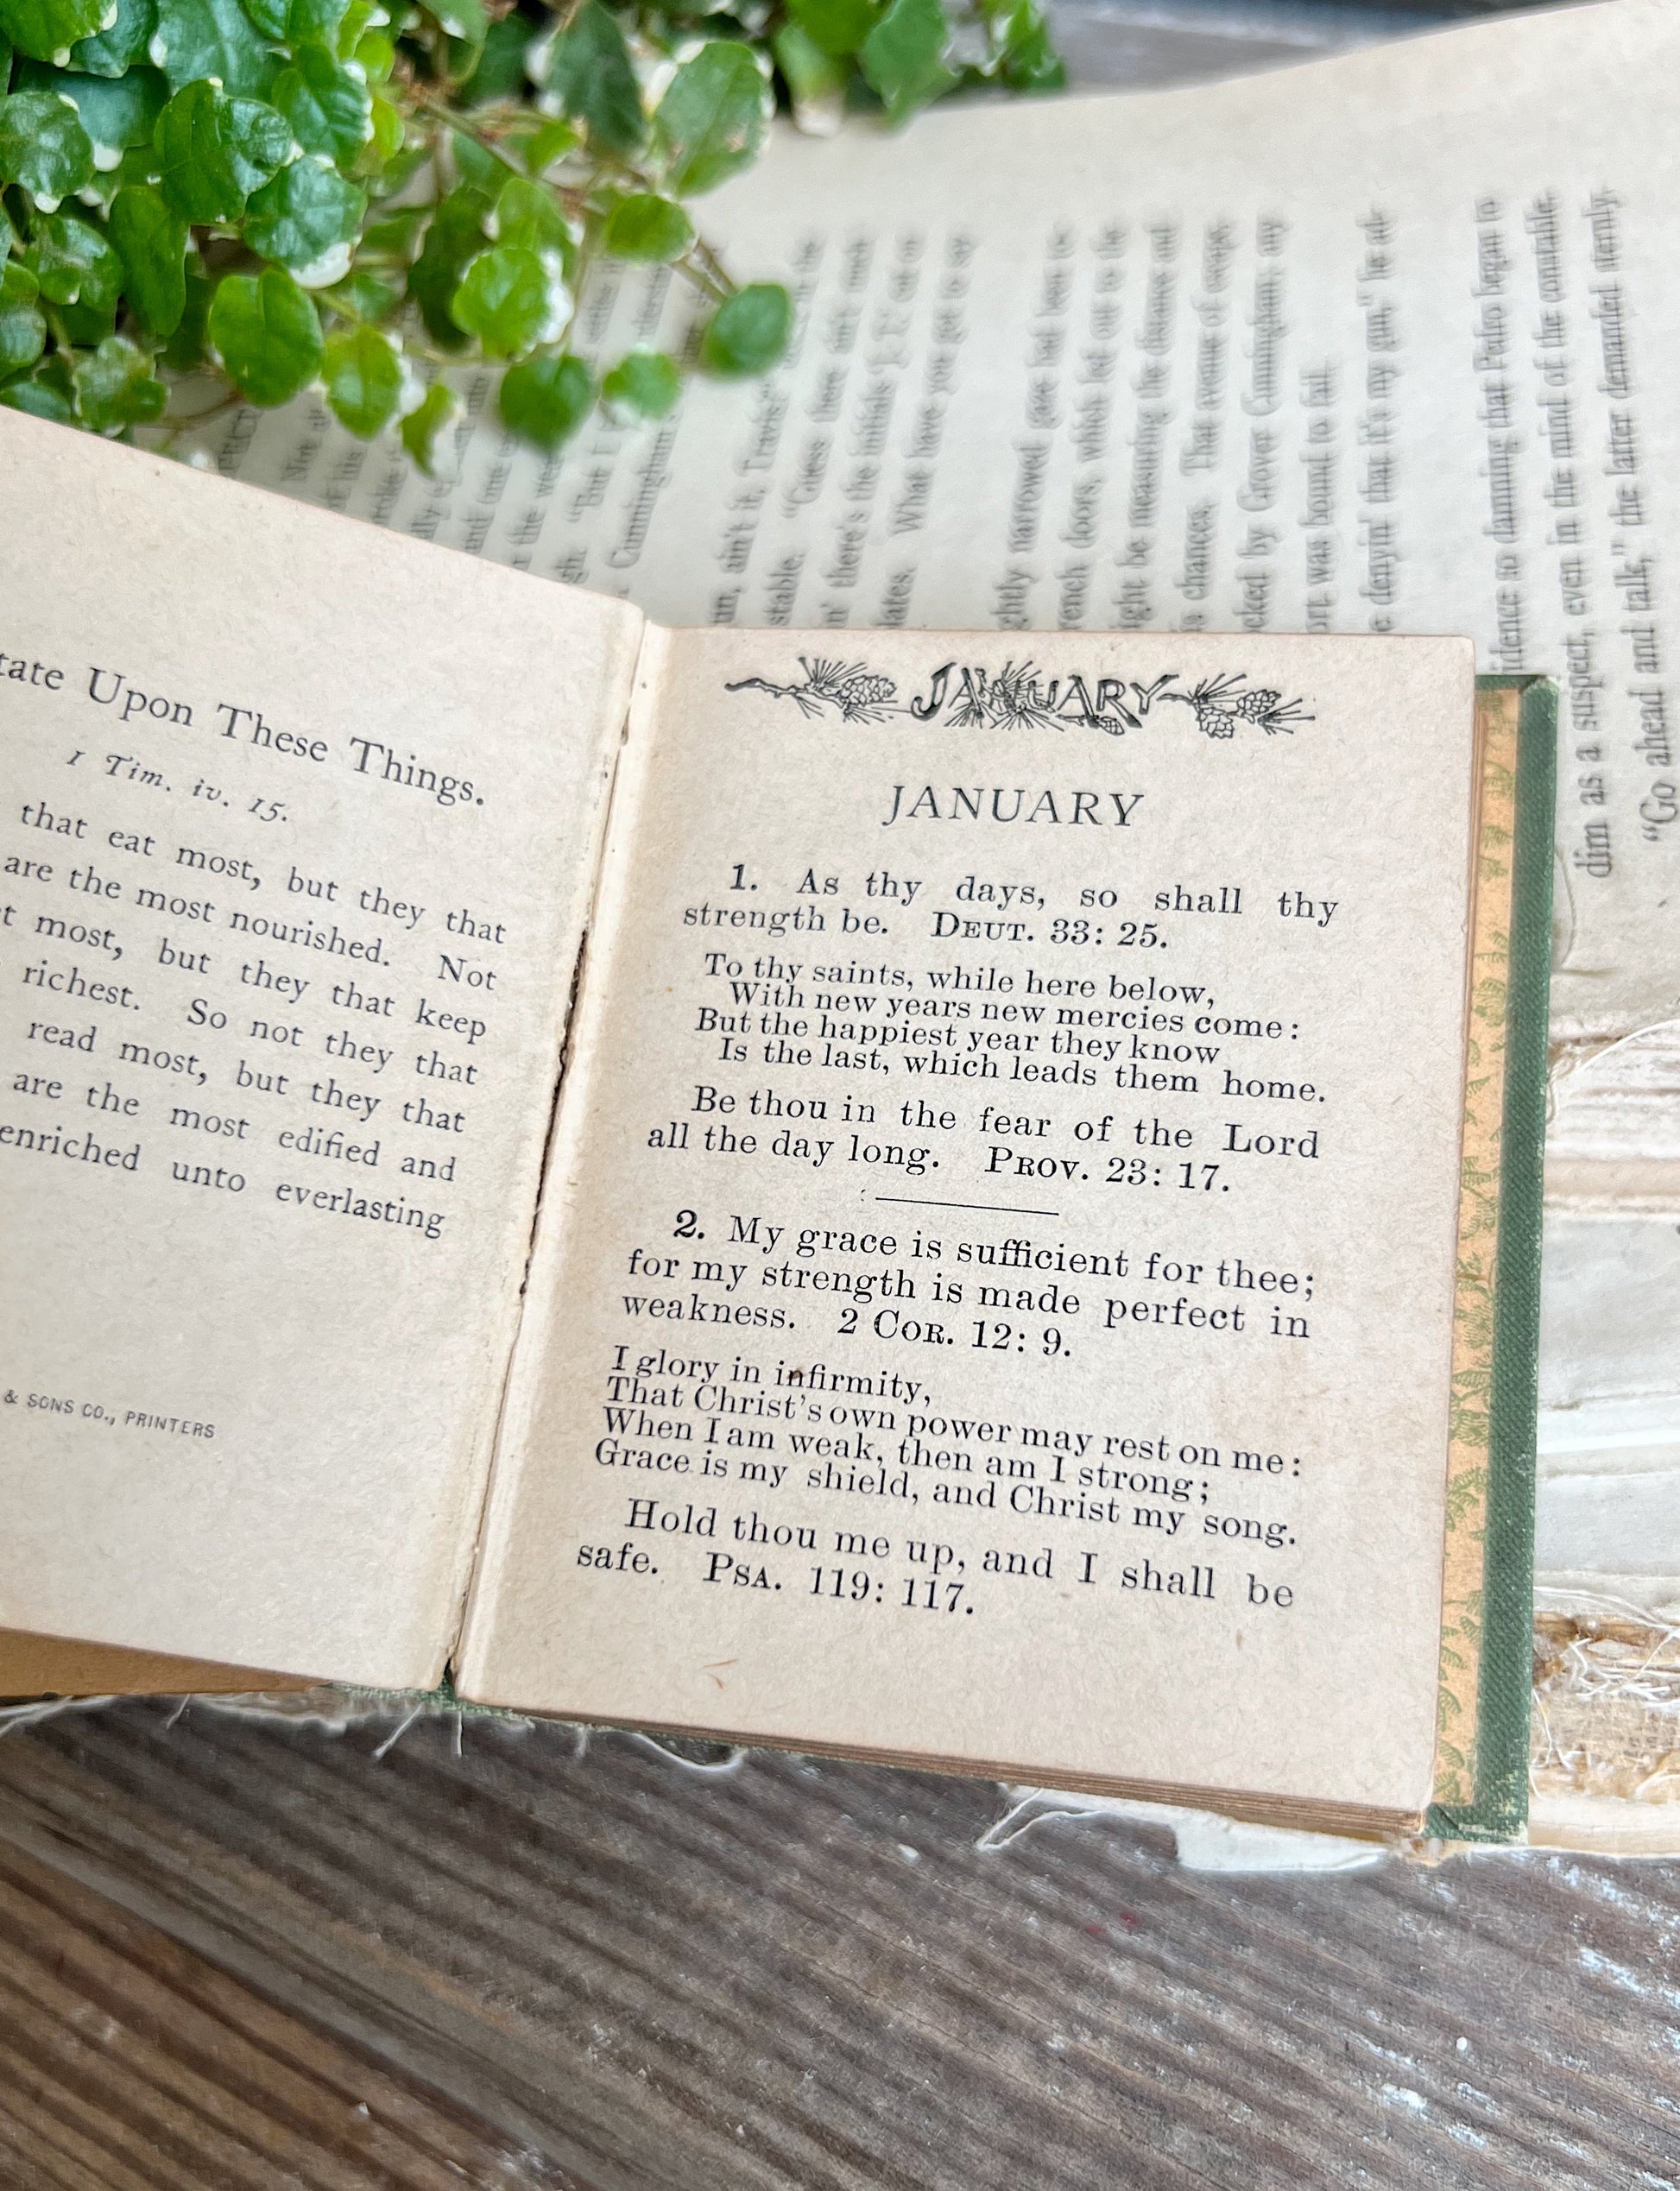 Upon These Things.
1 Tim. iv. 15.
that eat most, but they that
are the most nourished. Not
most, but they that keep
richest. So not they that
read most, but they that
are the most edified and
enriched unto everlasting
& SONS CO., PRINTERS
JANUARY
JANUARY
1. As thy days, so shall thy
strength be. DEUT. 33: 25.
To thy saints, while here below,
With new years new mercies come:
But the happiest year they know
Is the last, which leads them home.
Be thou in the fear of the Lord
all the day long. PROV. 23: 17.
2. My grace is sufficient for thee;
for my strength is made perfect in
weakness. 2 COR. 12: 9.
I glory in infirmity,
That Christ's own power may rest on me:
When I am weak, then am I strong;
Grace is my shield, and Christ my song.
Hold thou me up, and I shall be
safe. PSA. 119: 117.
ain't it, Travis
"Guess there ain't
there's the initials
What have you got to say
narrowed gaze had been
doors, which led out to the
be measuring the distance and
chances. That avenue of escape,
by Grover Cunningham, my
was bound to fail.
denyin' that it's my gun," he
so damning that Pedro began to
dim as a suspect, even in the mind of the constable.
"Go ahead and talk," the latter demanded sternly.